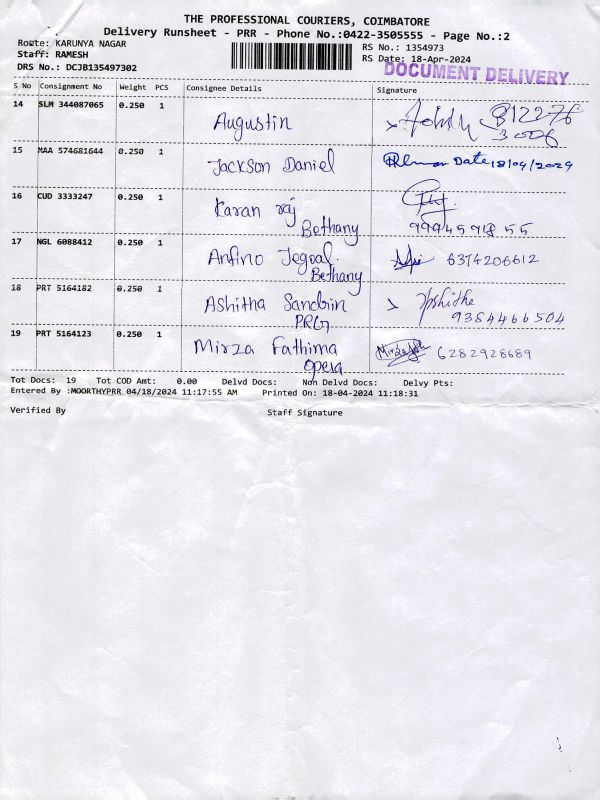 THE PROFESSIONAL COURIERS, COIMBATORE
Delivery Runsheet - PRR - Phone No.:0422-3505555 - Page No.:2
Route: KARUNYA NAGAR
RS No.: 1354973
Staff: RAMESH
RS Date: 18-Apr-2024
DRS No.: DCJB135497302
DOCUMENT DELIVERY
S No Consignment No Weight PCS Consignee Details Signature
14 SLM 344087065 0.250 1 Augustin 812276
3006
15 MAA 574681644 0.250 1 Jackson Daniel Date 18/04/2024
16 CUD 3333247 0.250 1 Karan raj
Bethany
17 NGL 6088412 0.250 1 Anfino Jegoal. 6374206612
Bethany
18 PRT 5164182 0.250 1 Ashitha Sandrin
PRG 9384466504
19 PRT 5164123 0.250 1 Mirza Fathima 6282928689
Opera
Tot Docs: 19 Tot COD Amt: 0.00 Delvd Docs: Non Delvd Docs: Delvy Pts:
Entered By :MOORTHYPRR 04/18/2024 11:17:55 AM Printed On: 18-04-2024 11:18:31
Verified By Staff Signature